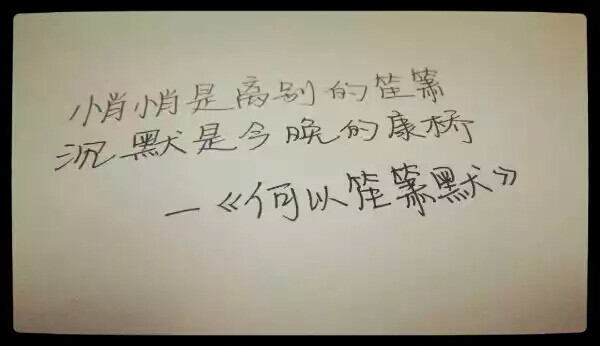 悄悄是离别的笙箫
沉默是今晚的康桥
—《何以笙箫默》